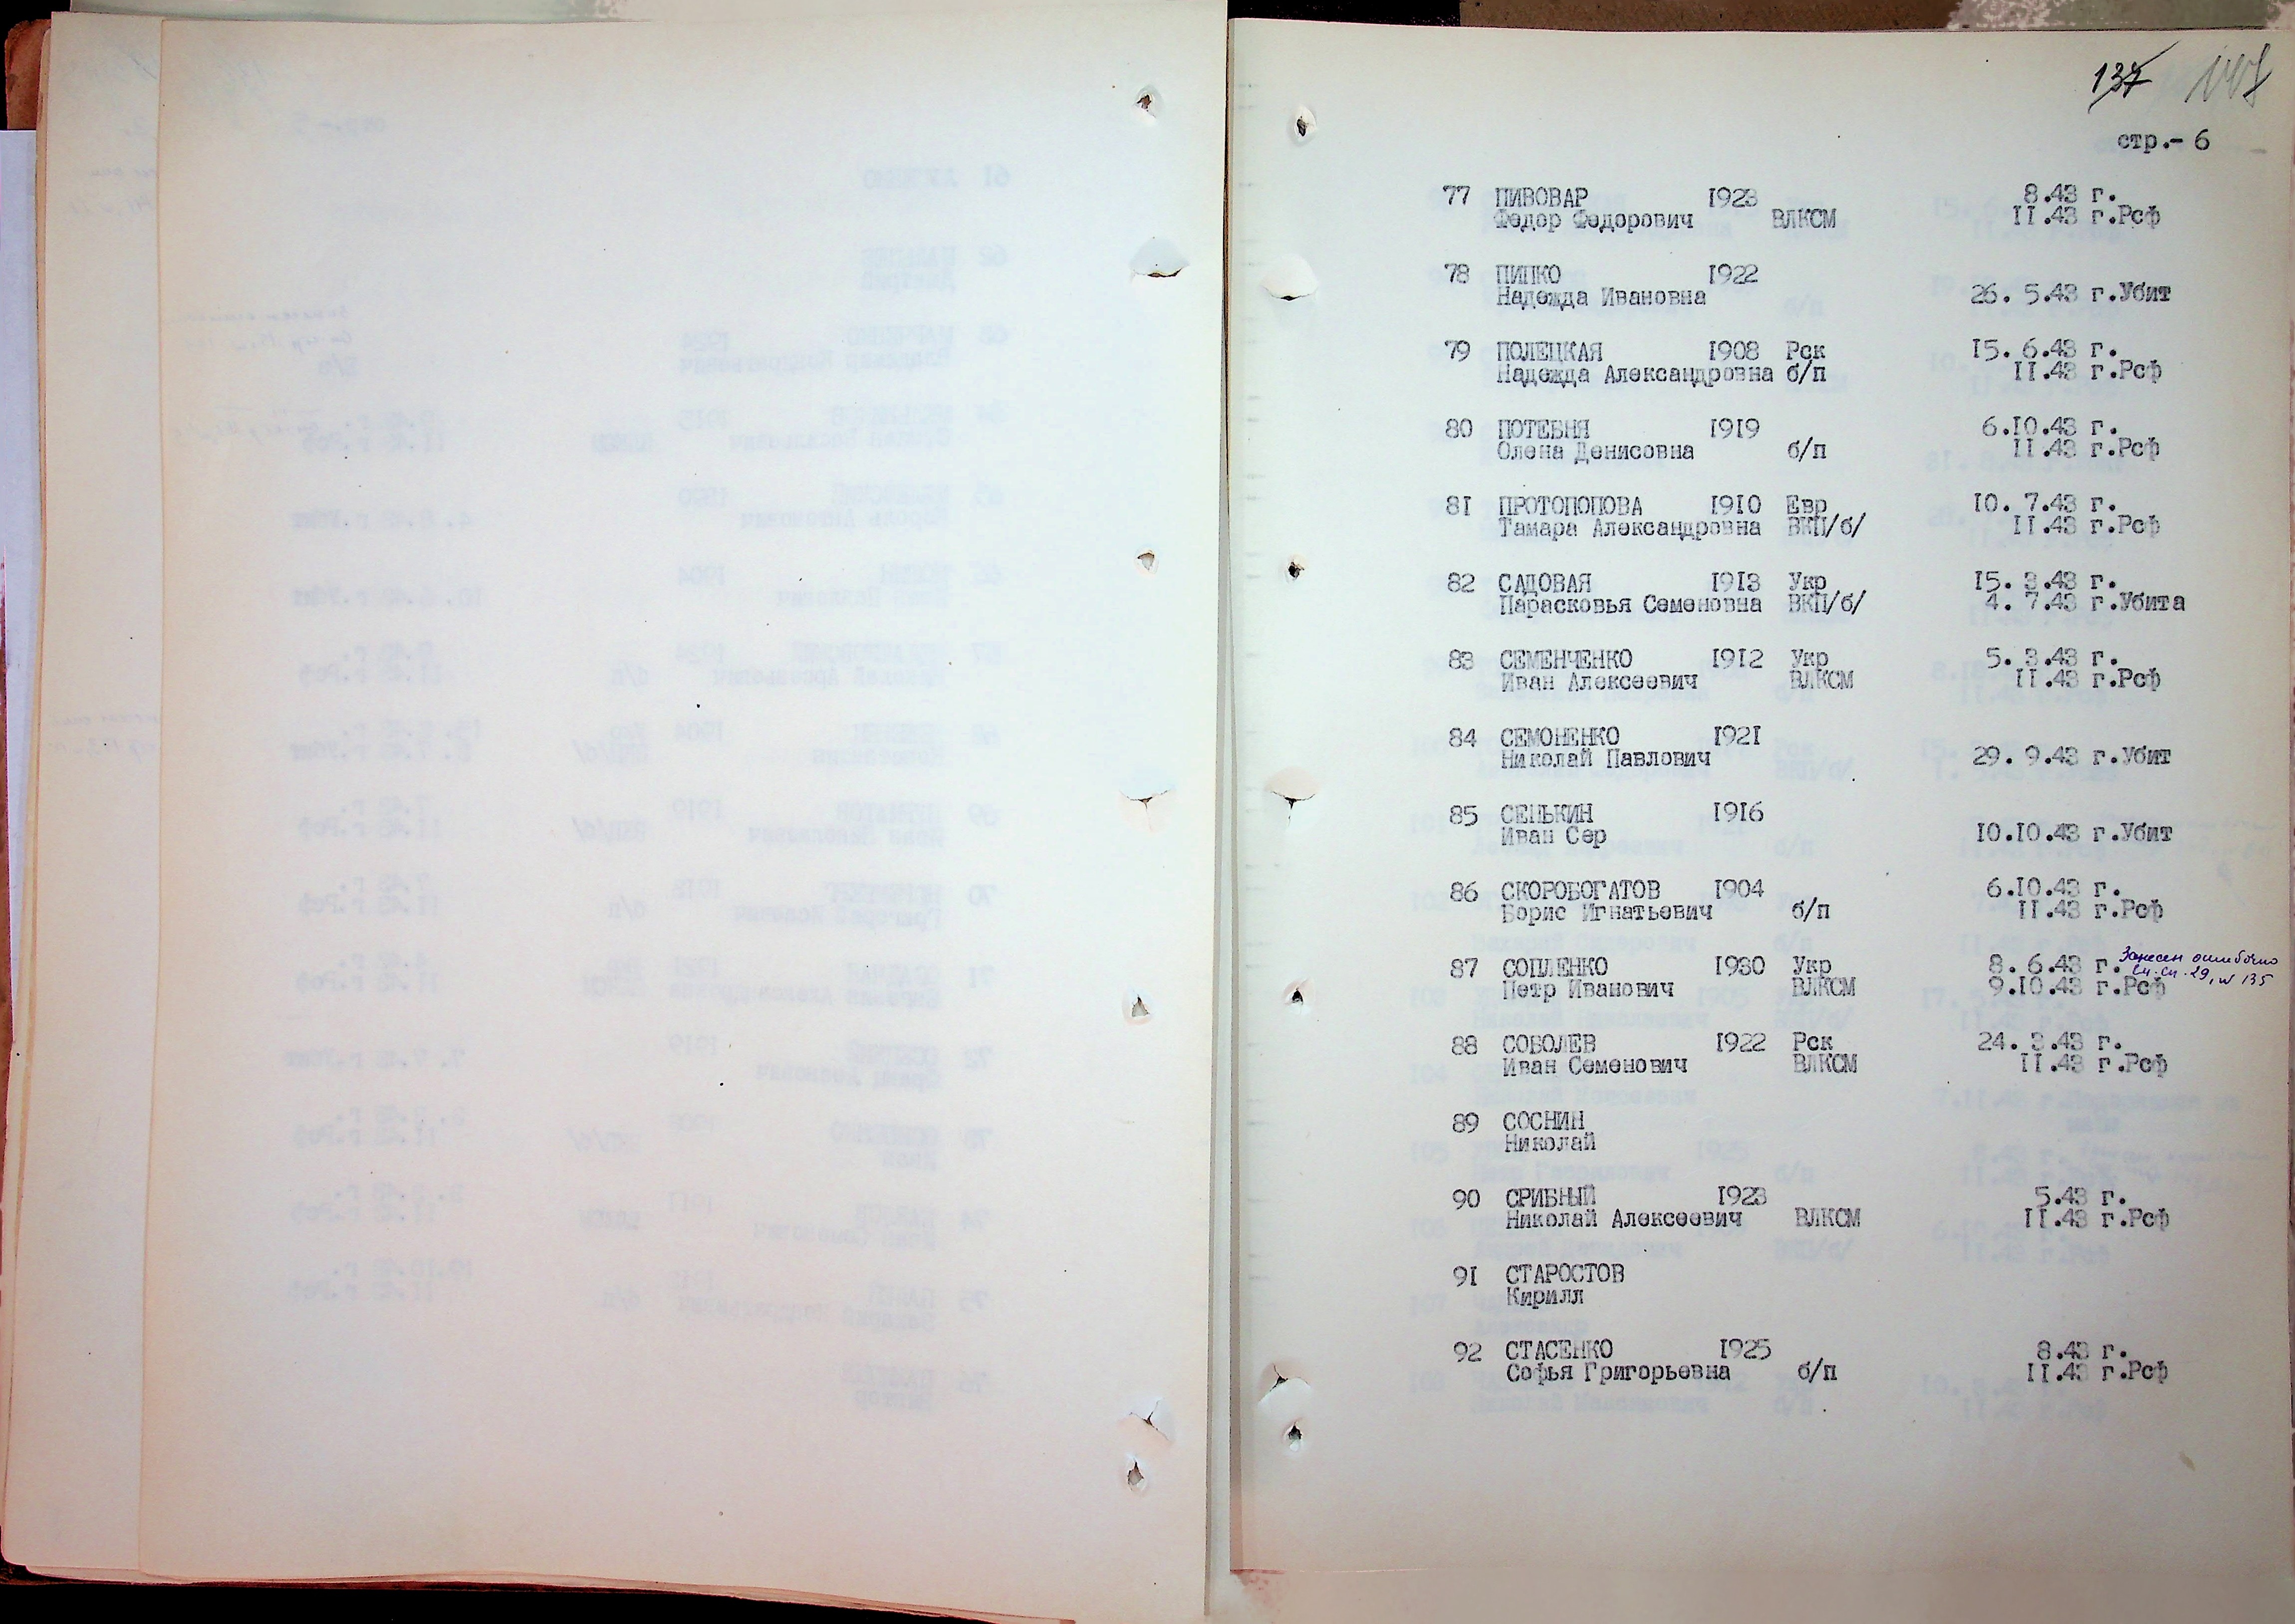 137
стр.- 6
77 ПИВОВАР 1923 8.43 г.
Федор Федорович ВЛКСМ II.43 г.Рсф
78 ПИПКО 1922
Надежда Ивановна 26. 5.43 г.Убит
79 ПОЛЕЦКАЯ 1908 Рск 15. 6.43 г.
Надежда Александровна б/п II.43 г.Рсф
80 ПОТЕБНЯ 1919 6.10.43 г.
Олена Денисовна б/п II.43 г.Рсф
81 ПРОТОПОПОВА 1910 Евр 10. 7.43 г.
Тамара Александровна ВКП/б/ II.43 г.Рсф
82 САДОВАЯ 1913 Укр 15. 3.43 г.
Парасковья Семеновна ВКП/б/ 4. 7.43 г.Убита
83 СЕМЕНЧЕНКО 1912 Укр 5. 3.43 г.
Иван Алексеевич ВЛКСМ II.43 г.Рсф
84 СЕМОНЕНКО 1921
Николай Павлович 29. 9.43 г.Убит
85 СЕНЬКИН 1916
Иван Сер 10.10.43 г.Убит
86 СКОРОБОГАТОВ 1904 6.10.43 г.
Борис Игнатьевич б/п II.43 г.Рсф
87 СОПЛЕНКО 1930 Укр 8. 6.43 г. Занесен ошибочно
Петр Иванович ВЛКСМ 9.10.43 г.Рсф см.сп.29, № 135
88 СОБОЛЕВ 1922 Рск 24. 3.43 г.
Иван Семенович ВЛКСМ II.43 г.Рсф
89 СОСНИН
Николай
90 СРИБНЫЙ 1923 5.43 г.
Николай Алексеевич ВЛКСМ II.43 г.Рсф
91 СТАРОСТОВ
Кирилл
92 СТАСЕНКО 1925 8.43 г.
Софья Григорьевна б/п II.43 г.Рсф